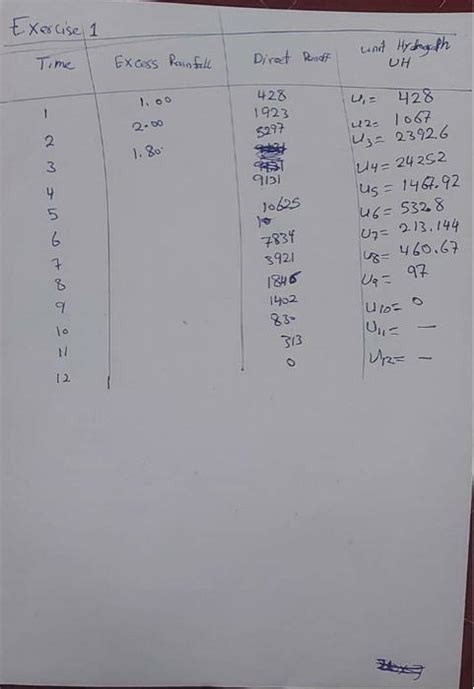 Exercise 1
Time Excess Rainfall Direct Runoff Unit Hydrograph
UH
1 1.00 428 U1= 428
2 2.00 1923 U2= 1067
3 1.80 5297 U3= 2392.6
4 9131 U4= 24252
5 10625 U5= 1467.92
6 7834 U6= 532.8
7 3921 U7= 213.144
8 1846 U8= 460.67
9 1402 U9= 97
10 830 U10= 0
11 313 U11= —
12 0 U12= —